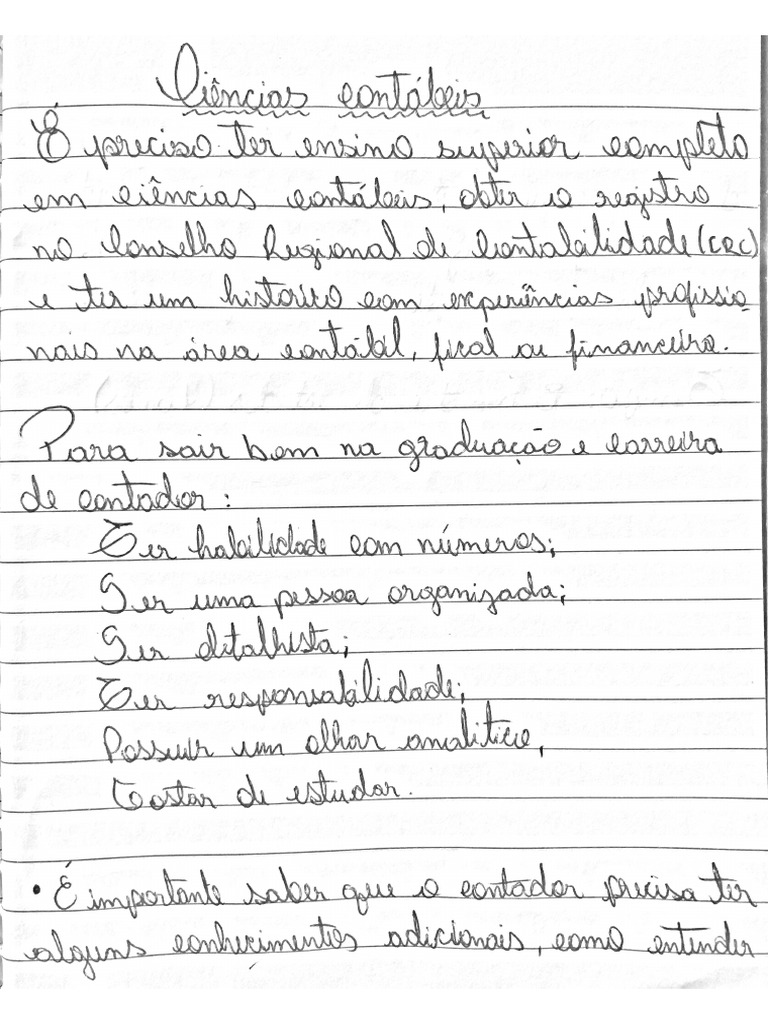 Ciências contábeis
É preciso ter ensino superior completo
em ciências contábeis, obter o registro
no Conselho Regional de Contabilidade (CRC)
e ter um historico com experiências profissio
nais na área contábil, fiscal ou financeira.
Para sair bem na graduação e carreira
de contador:
Ter habilidade com números;
Ser uma pessoa organizada;
Ser detalhista;
Ter responsabilidade;
Possuir um olhar analitico,
Gostar de estudar.
• É importante saber que o contador precisa ter
alguns conhecimentos adicionais, como entender